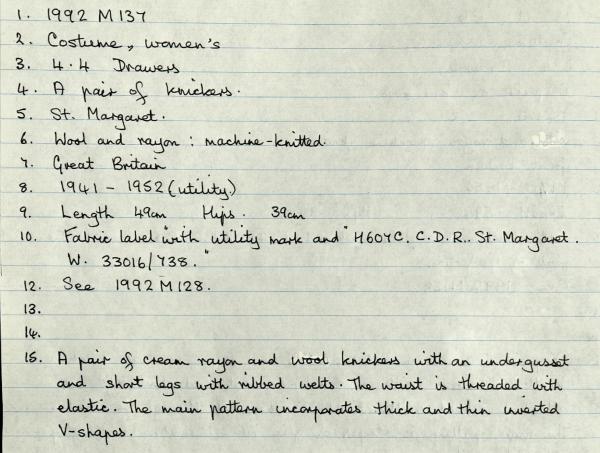 1. 1992 M 137
2. Costume, women's
3. 4.4 Drawers
4. A pair of knickers.
5. St. Margaret.
6. Wool and rayon : machine-knitted.
7. Great Britain
8. 1941 - 1952 (utility)
9. Length 49cm Hips. 39cm
10. Fabric label with utility mark and "H607C. C.D.R.. St. Margaret.
W. 33016/738."
12. See 1992 M 128.
13.
14.
15. A pair of cream rayon and wool knickers with an undergusset
and short legs with ribbed welts. The waist is threaded with
elastic. The main pattern incorporates thick and thin inverted
V-shapes.